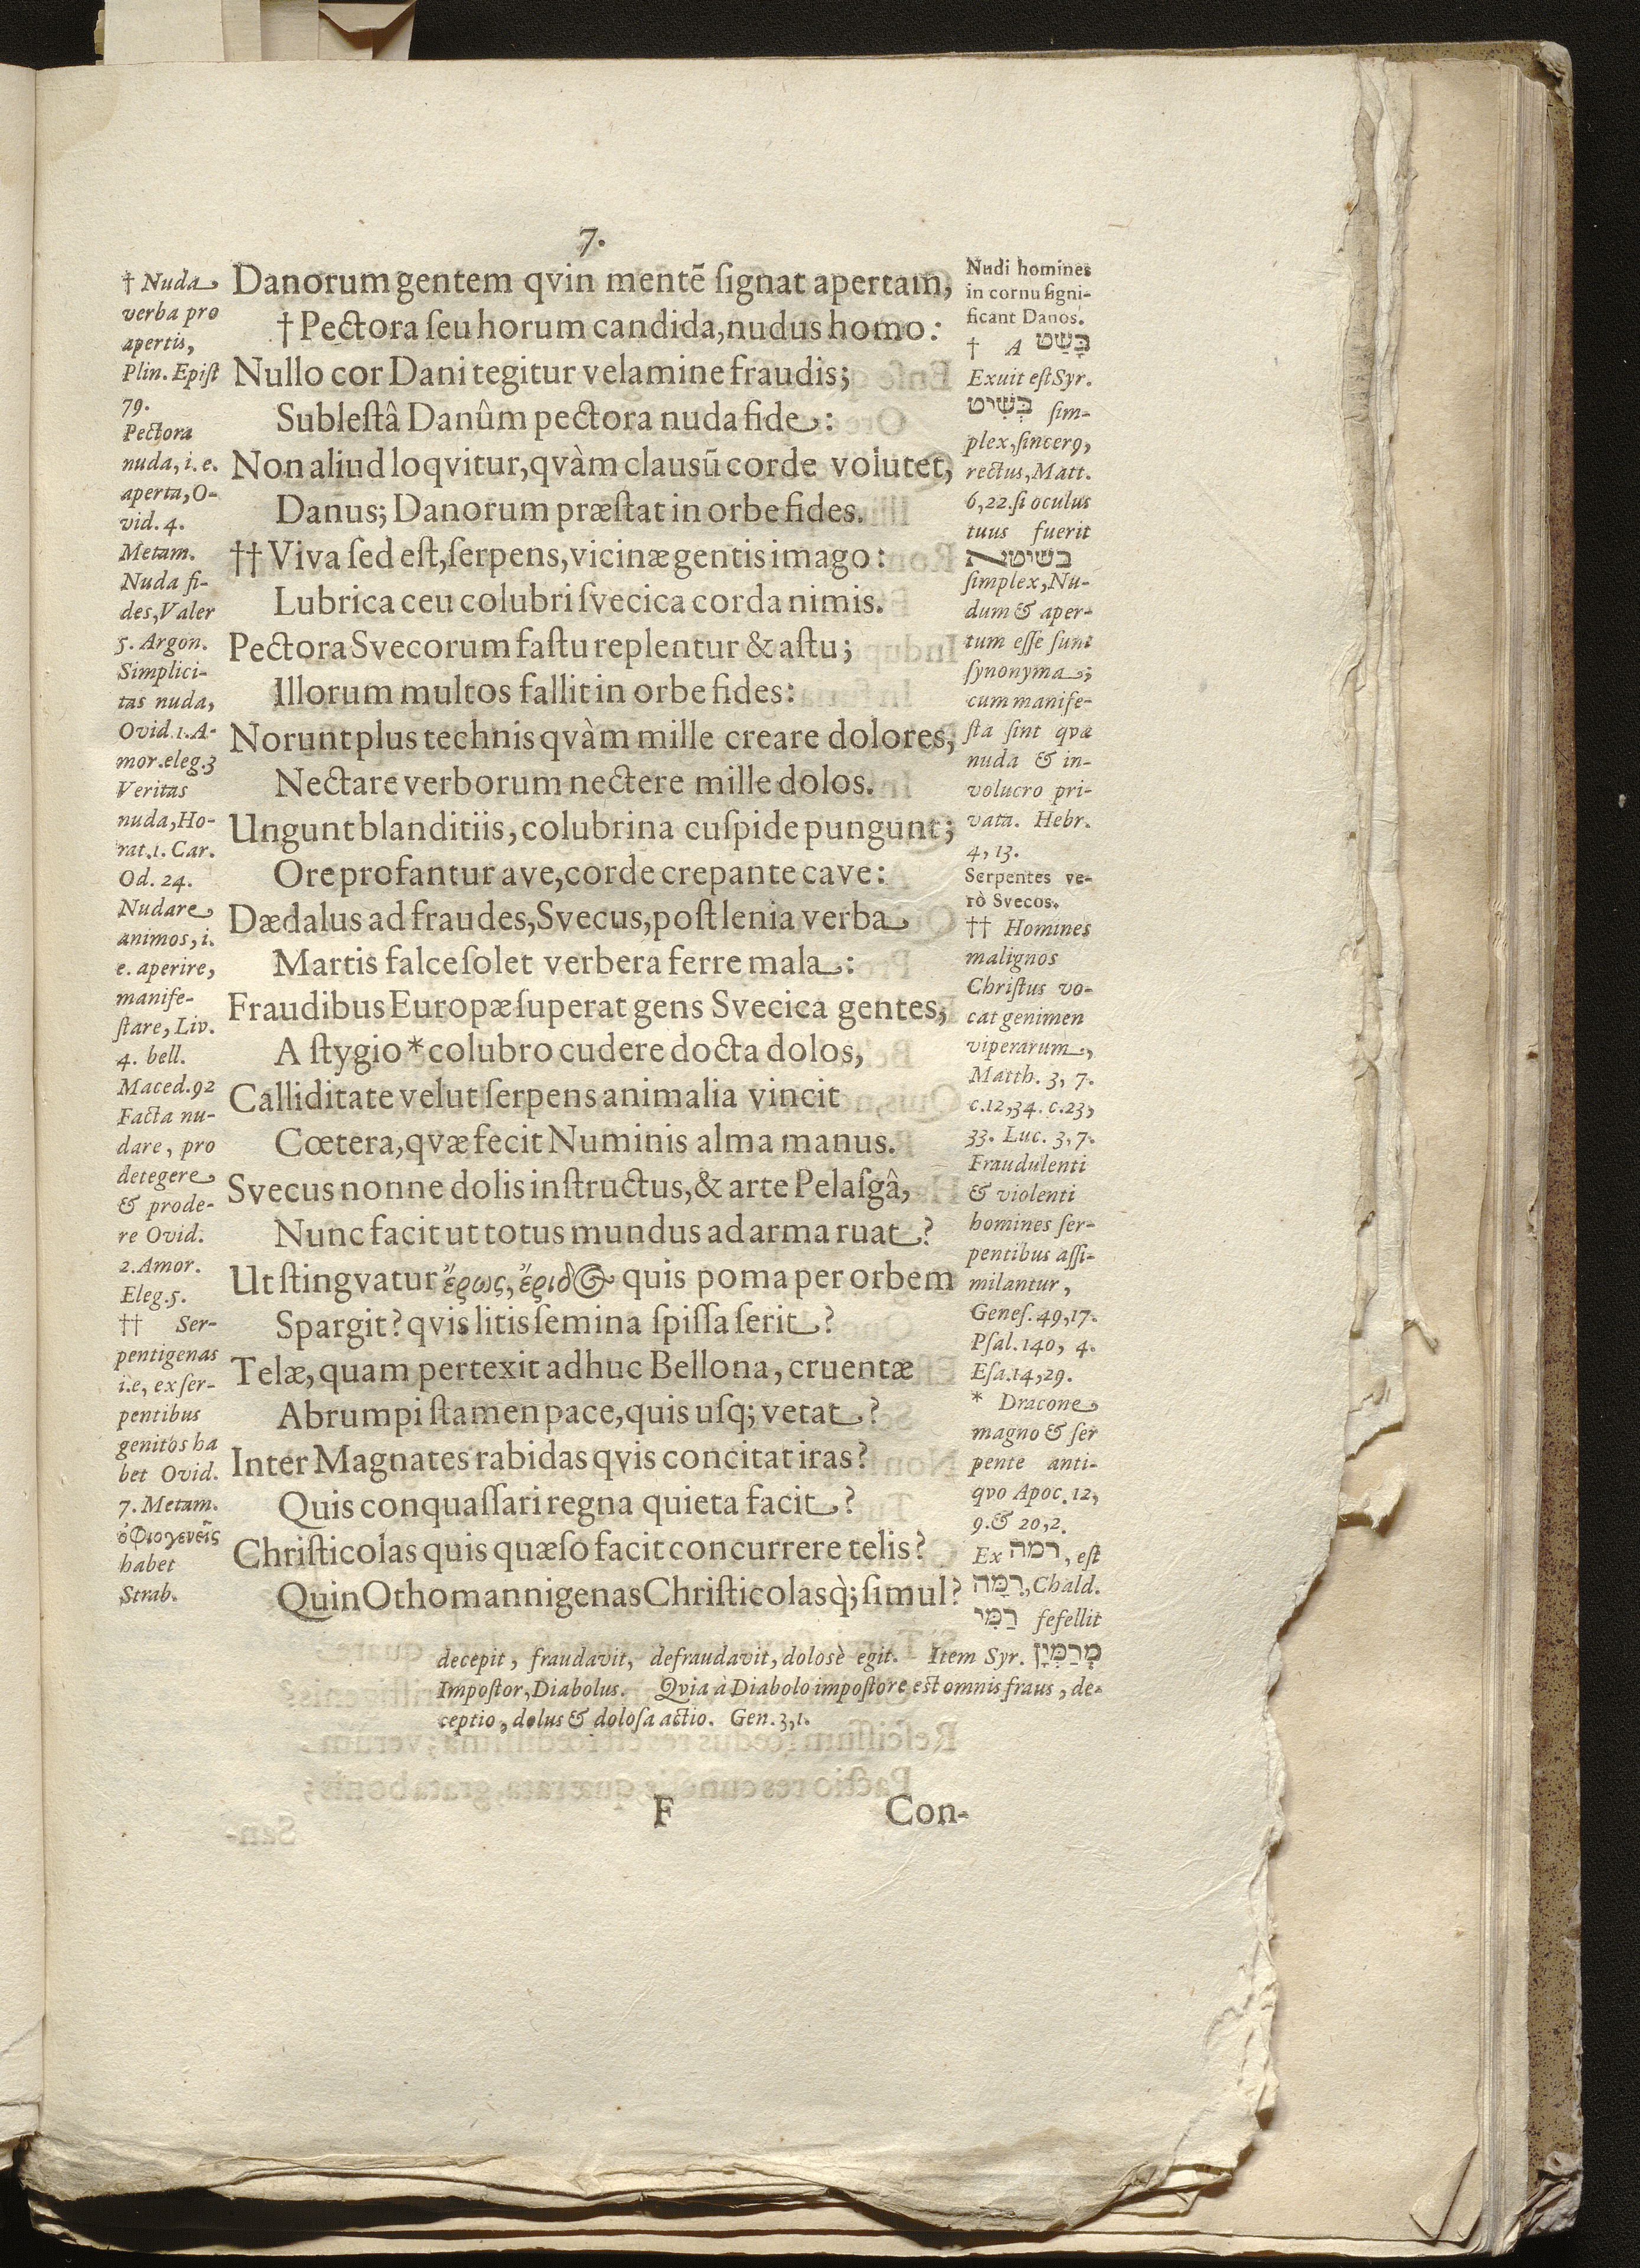 7.
† Nuda
verba pro
apertis,
Plin. Epiſt
79.
Pectora
nuda, i. e.
aperta, O-
vid. 4.
Metam.
Nuda fi-
des, Valer
5. Argon.
Simplici-
tas nuda,
Ovid. 1. A-
mor. eleg. 3
Veritas
nuda, Ho-
rat. 1. Car.
Od. 24.
Nudare
animos, i.
e. aperire,
manife-
ſtare, Liv.
4. bell.
Maced. 92
Facta nu-
dare, pro
detegere
& prode-
re Ovid.
2. Amor.
Eleg. 5.
†† Ser-
pentigenas
i.e, ex ſer-
pentibus
genitos ha
bet Ovid.
7. Metam.
ὀφιογενεῖς
habet
Strab.
Danorum gentem qvin mentē ſignat apertam,
† Pectora ſeu horum candida, nudus homo:
Nullo cor Dani tegitur velamine fraudis;
Subleſtâ Danûm pectora nuda fide:
Non aliud loqvitur, qvàm clausū corde volutet,
Danus; Danorum præſtat in orbe fides.
†† Viva ſed eſt, ſerpens, vicinæ gentis imago:
Lubrica ceu colubri ſvecica corda nimis.
Pectora Svecorum faſtu replentur & aſtu;
Illorum multos fallit in orbe fides:
Norunt plus technis qvàm mille creare dolores,
Nectare verborum nectere mille dolos.
Ungunt blanditiis, colubrina cuſpide pungunt;
Ore profantur ave, corde crepante cave:
Dædalus ad fraudes, Svecus, poſt lenia verba
Martis falce ſolet verbera ferre mala:
Fraudibus Europæ ſuperat gens Svecica gentes,
A ſtygio * colubro cudere docta dolos,
Calliditate velut ſerpens animalia vincit
Cœtera, qvæ fecit Numinis alma manus.
Svecus nonne dolis inſtructus, & arte Pelaſgâ,
Nunc facit ut totus mundus ad arma ruat?
Ut ſtingvatur ἔρως, ἔριδος quis poma per orbem
Spargit? qvis litis ſemina ſpiſſa ſerit?
Telæ, quam pertexit adhuc Bellona, cruentæ
Abrumpi ſtamen pace, quis uſq; vetat?
Inter Magnates rabidas qvis concitat iras?
Quis conquaſſari regna quieta facit?
Chriſticolas quis quæſo facit concurrere telis?
Quin Othomannigenas Chriſticolasq̀; ſimul?
Nudi homines
in cornu ſigni-
ficant Danos.
† A בָּשַׁט
Exuit eſt Syr.
בְּשִׁיט ſim-
plex, ſincerꝰ,
rectus, Matt.
6, 22. ſi oculus
tuus fuerit
בשיטא
ſimplex, Nu-
dum & aper-
tum eſſe ſunt
ſynonyma;
cum manife-
ſta ſint qvæ
nuda & in-
volucro pri-
vata. Hebr.
4, 13.
Serpentes ve-
rò Svecos.
†† Homines
malignos
Chriſtus vo-
cat genimen
viperarum,
Matth. 3, 7.
c. 12, 34. c. 23,
33. Luc. 3, 7.
Fraudulenti
& violenti
homines ſer-
pentibus aſſi-
milantur,
Geneſ. 49, 17.
Pſal. 140, 4.
Eſa. 14, 29.
* Dracone
magno & ſer
pente anti-
qvo Apoc. 12,
9. & 20, 2.
Ex רמה, eſt
רִמָּה, Chald.
רַמִּי fefellit
decepit, fraudavit, defraudavit, dolosè egit. Item Syr.
Impoſtor, Diabolus. Qvia à Diabolo impoſtore eſt omnis fraus, de-
ceptio, dolus & doloſa actio. Gen. 3, 1.
F Con-